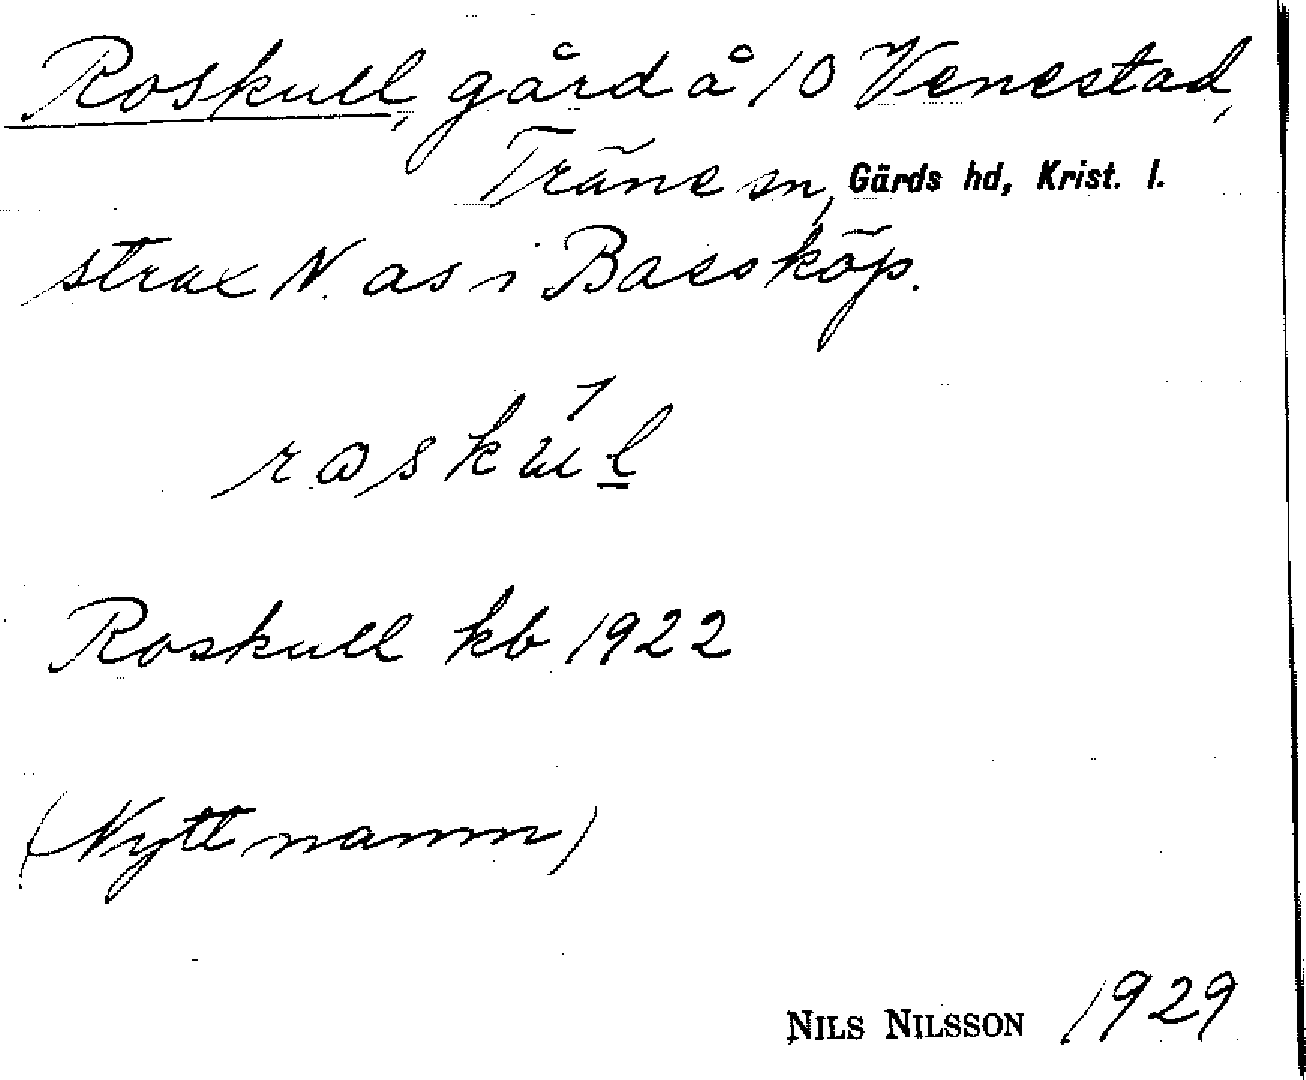 Roskull, gård å 10 Venestad,
Träne sn, Gärds hd, Krist. l.
strax N. as i Bassköp.
Roskull kb 1922
(Nytt namn)
NILS NILSSON 1929